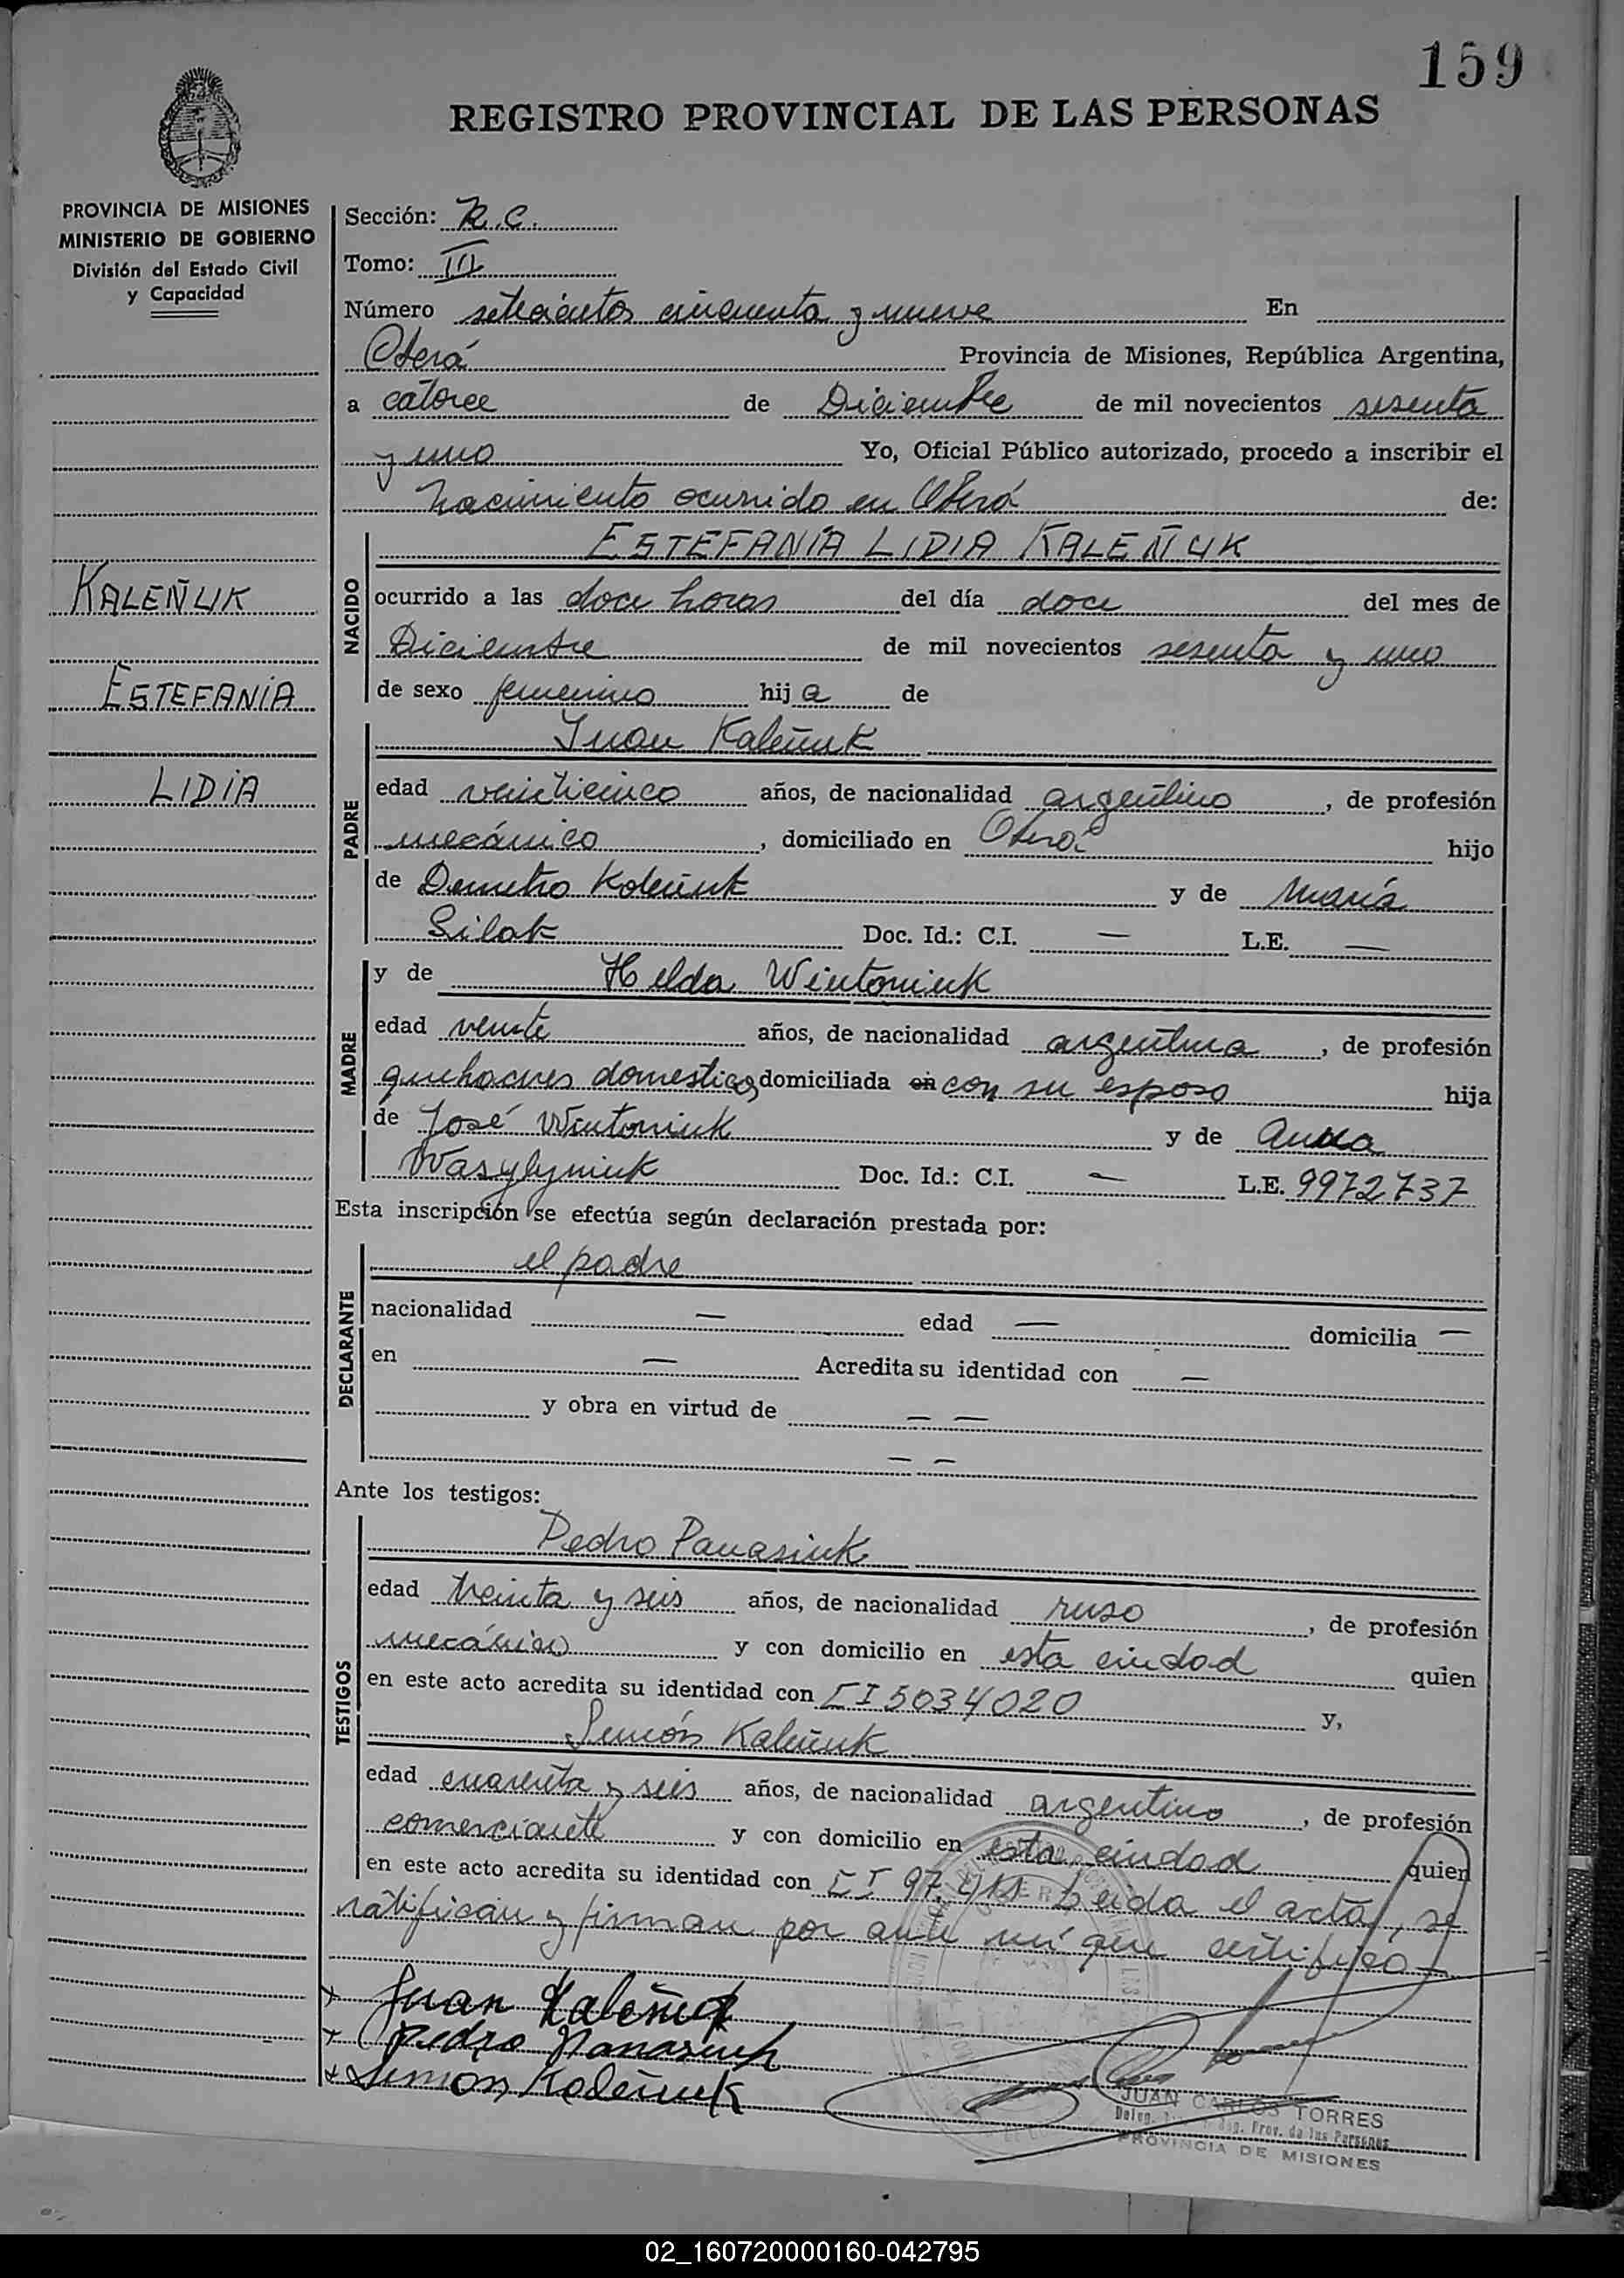 159
REGISTRO PROVINCIAL DE LAS PERSONAS
PROVINCIA DE MISIONES
MINISTERIO DE GOBIERNO
División del Estado Civil
y Capacidad
KALEÑUK
ESTEFANÍA
LIDIA
Sección: R.C.
Tomo: III
Número setecientos cincuenta y nueve En
Oberá Provincia de Misiones, República Argentina,
a catorce de Diciembre de mil novecientos sesenta
y uno Yo, Oficial Público autorizado, procedo a inscribir el
nacimiento ocurrido en Oberá de:
NACIDO
ESTEFANÍA LIDIA KALEÑUK
ocurrido a las doce horas del día doce del mes de
Diciembre de mil novecientos sesenta y uno
de sexo femenino hij a de
PADRE
Juan Kaleñuk
edad veinticinco años, de nacionalidad argentino, de profesión
mecánico, domiciliado en Oberá hijo
de Demetrio Kaleñuk y de María
Silak Doc. Id.: C.I. — L.E. —
MADRE
y de Helda Wintoniuk
edad veinte años, de nacionalidad argentina, de profesión
quehaceres domesticos domiciliada en con su esposo hija
de José Wintoniuk y de Anna
Wasylyniuk Doc. Id.: C.I. — L.E. 9972737
Esta inscripción se efectúa según declaración prestada por:
DECLARANTE
el padre
nacionalidad — edad — domicilia —
en — Acredita su identidad con —
y obra en virtud de — —
— —
Ante los testigos:
TESTIGOS
Pedro Panasiuk
edad treinta y seis años, de nacionalidad ruso, de profesión
mecánico y con domicilio en esta ciudad quien
en este acto acredita su identidad con CI 5034020 y,
Simón Kaleñuk
edad cuarenta y seis años, de nacionalidad argentino, de profesión
comerciante y con domicilio en esta ciudad quien
en este acto acredita su identidad con CI Leida el acta, se
ratifican y firman por ante mí que certifico —
x Juan Kaleñuk
x Pedro Panasiuk
x Simon Kaleñuk
JUAN CARLOS TORRES
Deleg. Reg. Prov. de las Personas
PROVINCIA DE MISIONES
02_160720000160-042795